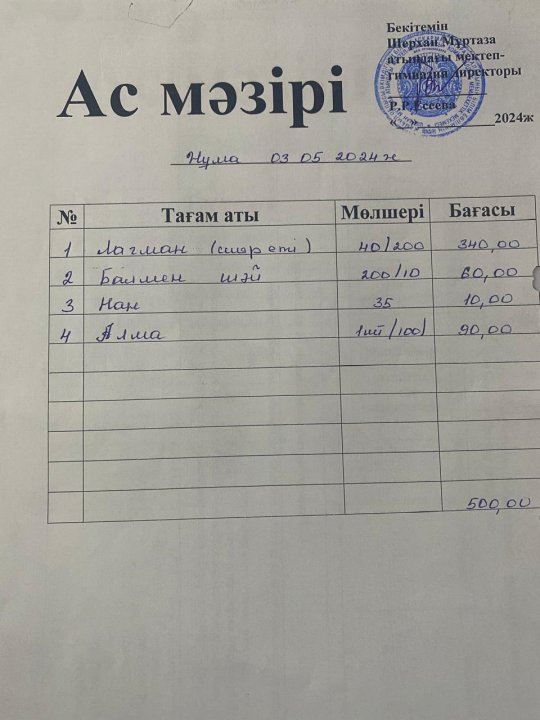 Бекітемін
Шерхан Мұртаза
атындағы мектеп-
гимназия директоры
Р.Р.Есеева
2024ж
Ас мәзірі
Жұма 03 05 2024ж
№ Тағам аты Мөлшері Бағасы
1 Лағман (сиыр еті) 40/200 340,00
2 Балмен шәй 200/10 60,00
3 Нан 35 10,00
4 Алма 1шт/100/ 90,00
500,00